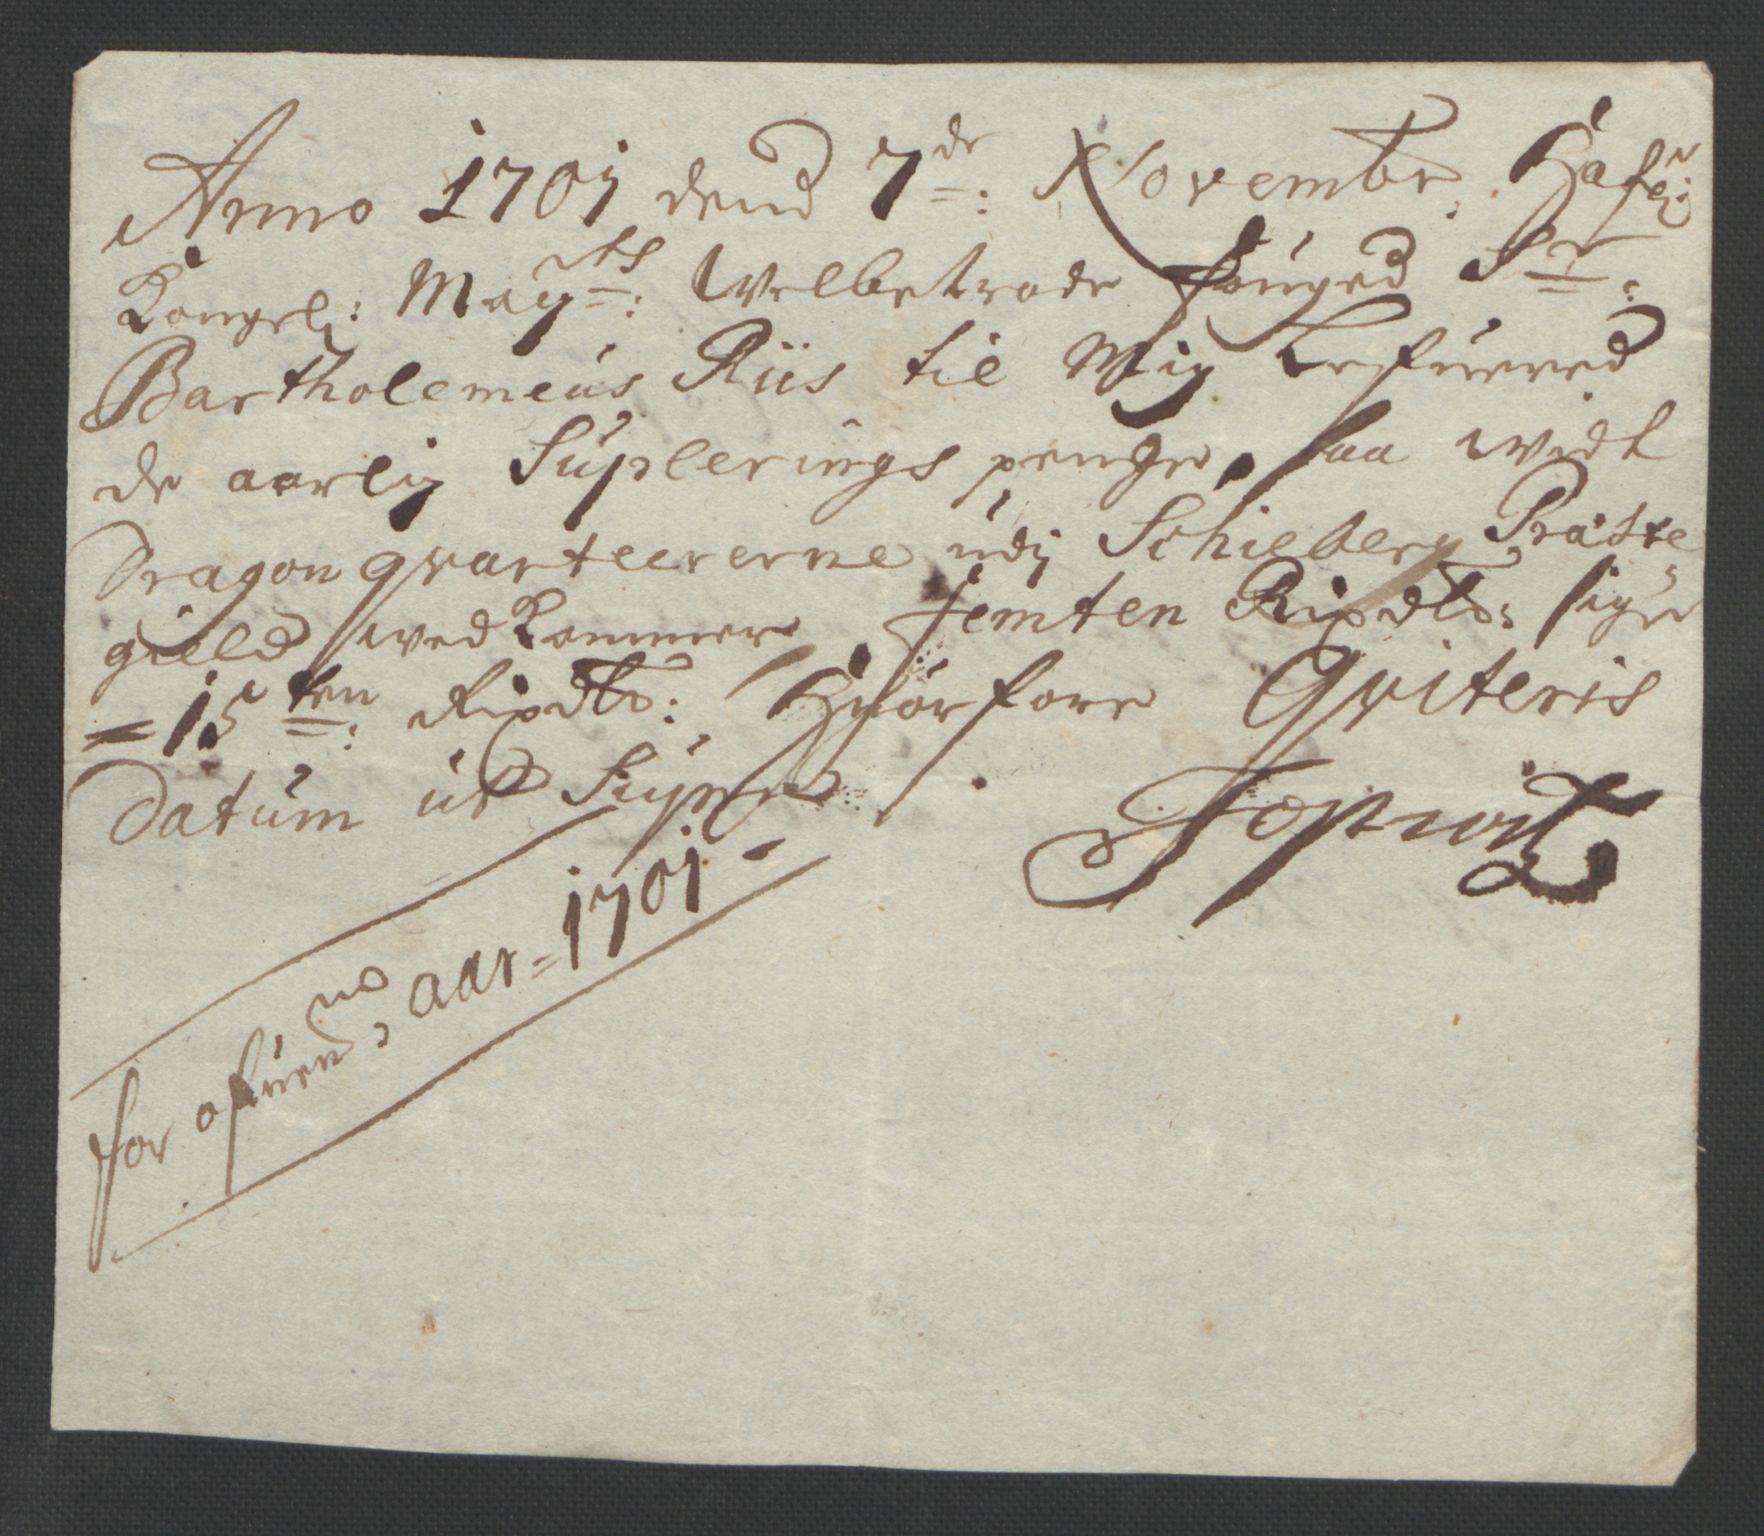 Anno 1701 dend 7de: Novembr. Hafr
Kongel: Mayts: Welbetrode fouged Sr:
Bartholemeus Riis til Mig Lefuered
de aarlig Suplerings penge, saa widt
Dragon qvarteererne udj Schieberg Præste
gield wed Kommer, femten Rixdlr: siger
= 15ten: Rixdlr: Huorfore Qviteris
Datum ut Supra
for ofuenno: aar = 1701 -